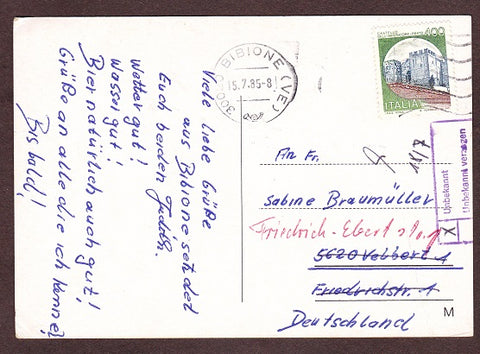 Viele liebe Grüße
aus Bibione sendet
Euch beiden Judith.
Wetter gut!
Wasser gut!
Bier natürlich auch gut!
Grüße an alle die ich kenne!
Bis bald!
BIBIONE (VE)
15.7.85-8
400
ITALIA
An Fr.
Sabine Braumüller
Friedrich-Ebert
5620 Velbert 1
Friedrichstr. 1
Deutschland
Unbekannt
Unbekannt verzogen
X
M